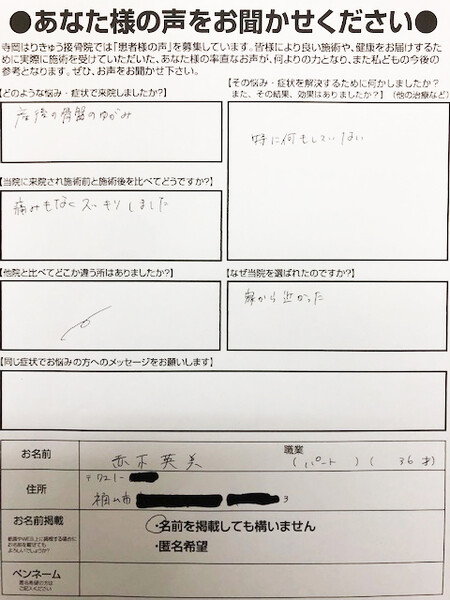 ●あなた様の声をお聞かせください●
寺岡はりきゅう接骨院では「患者様の声」を募集しています。皆様により良い施術や、健康をお届けするため
に実際に施術を受けていただいた、あなた様の率直なお声が、何よりの力となり、また私どもの今後の
参考となります。ぜひ、お声をお聞かせ下さい。
【どのような悩み・症状で来院しましたか？】
産後の骨盤のゆがみ
【その悩み・症状を解決するために何かしましたか？
また、その結果、効果はありましたか？】（他の治療など）
特に何もしていない
【当院に来院され施術前と施術後を比べてどうですか？】
痛みもなくスッキリしました
【他院と比べてどこか違う所はありましたか？】
【なぜ当院を選ばれたのですか？】
家から近かった
【同じ症状でお悩みの方へのメッセージをお願いします】
お名前 赤木英美 職業 （パート）（36才）
住所 〒721-
福山市 3
お名前掲載
紙面やWEB上に掲載する場合に
お名前を載せても
よろしいでしょうか？
・名前を掲載しても構いません
・匿名希望
ペンネーム
匿名希望の方は
ご記入ください